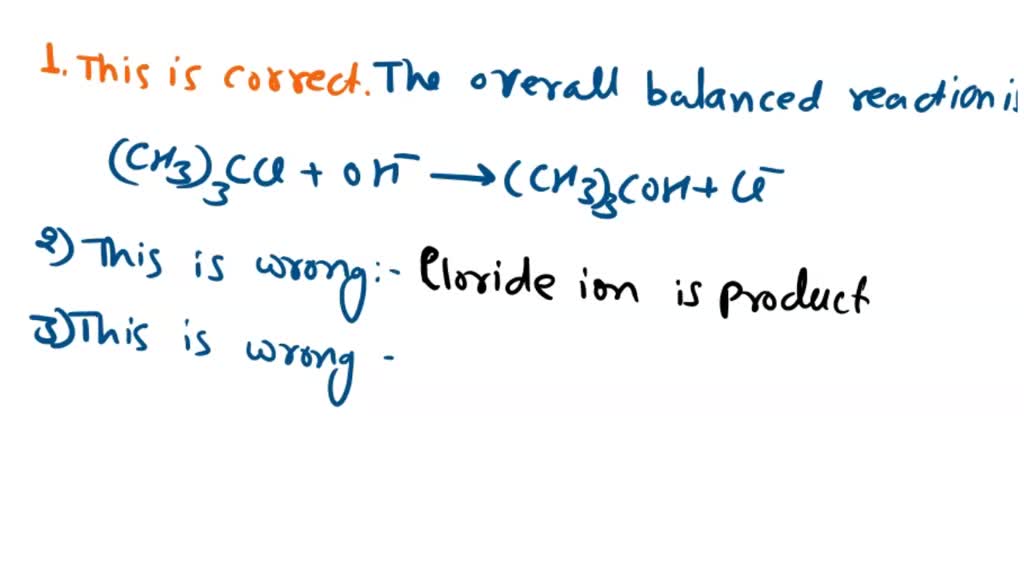 1. This is correct. The overall balanced reaction is
(CH3)3CCl + OH⁻ → (CH3)3COH + Cl⁻
2) This is wrong:- Cloride ion is product
3) This is wrong -